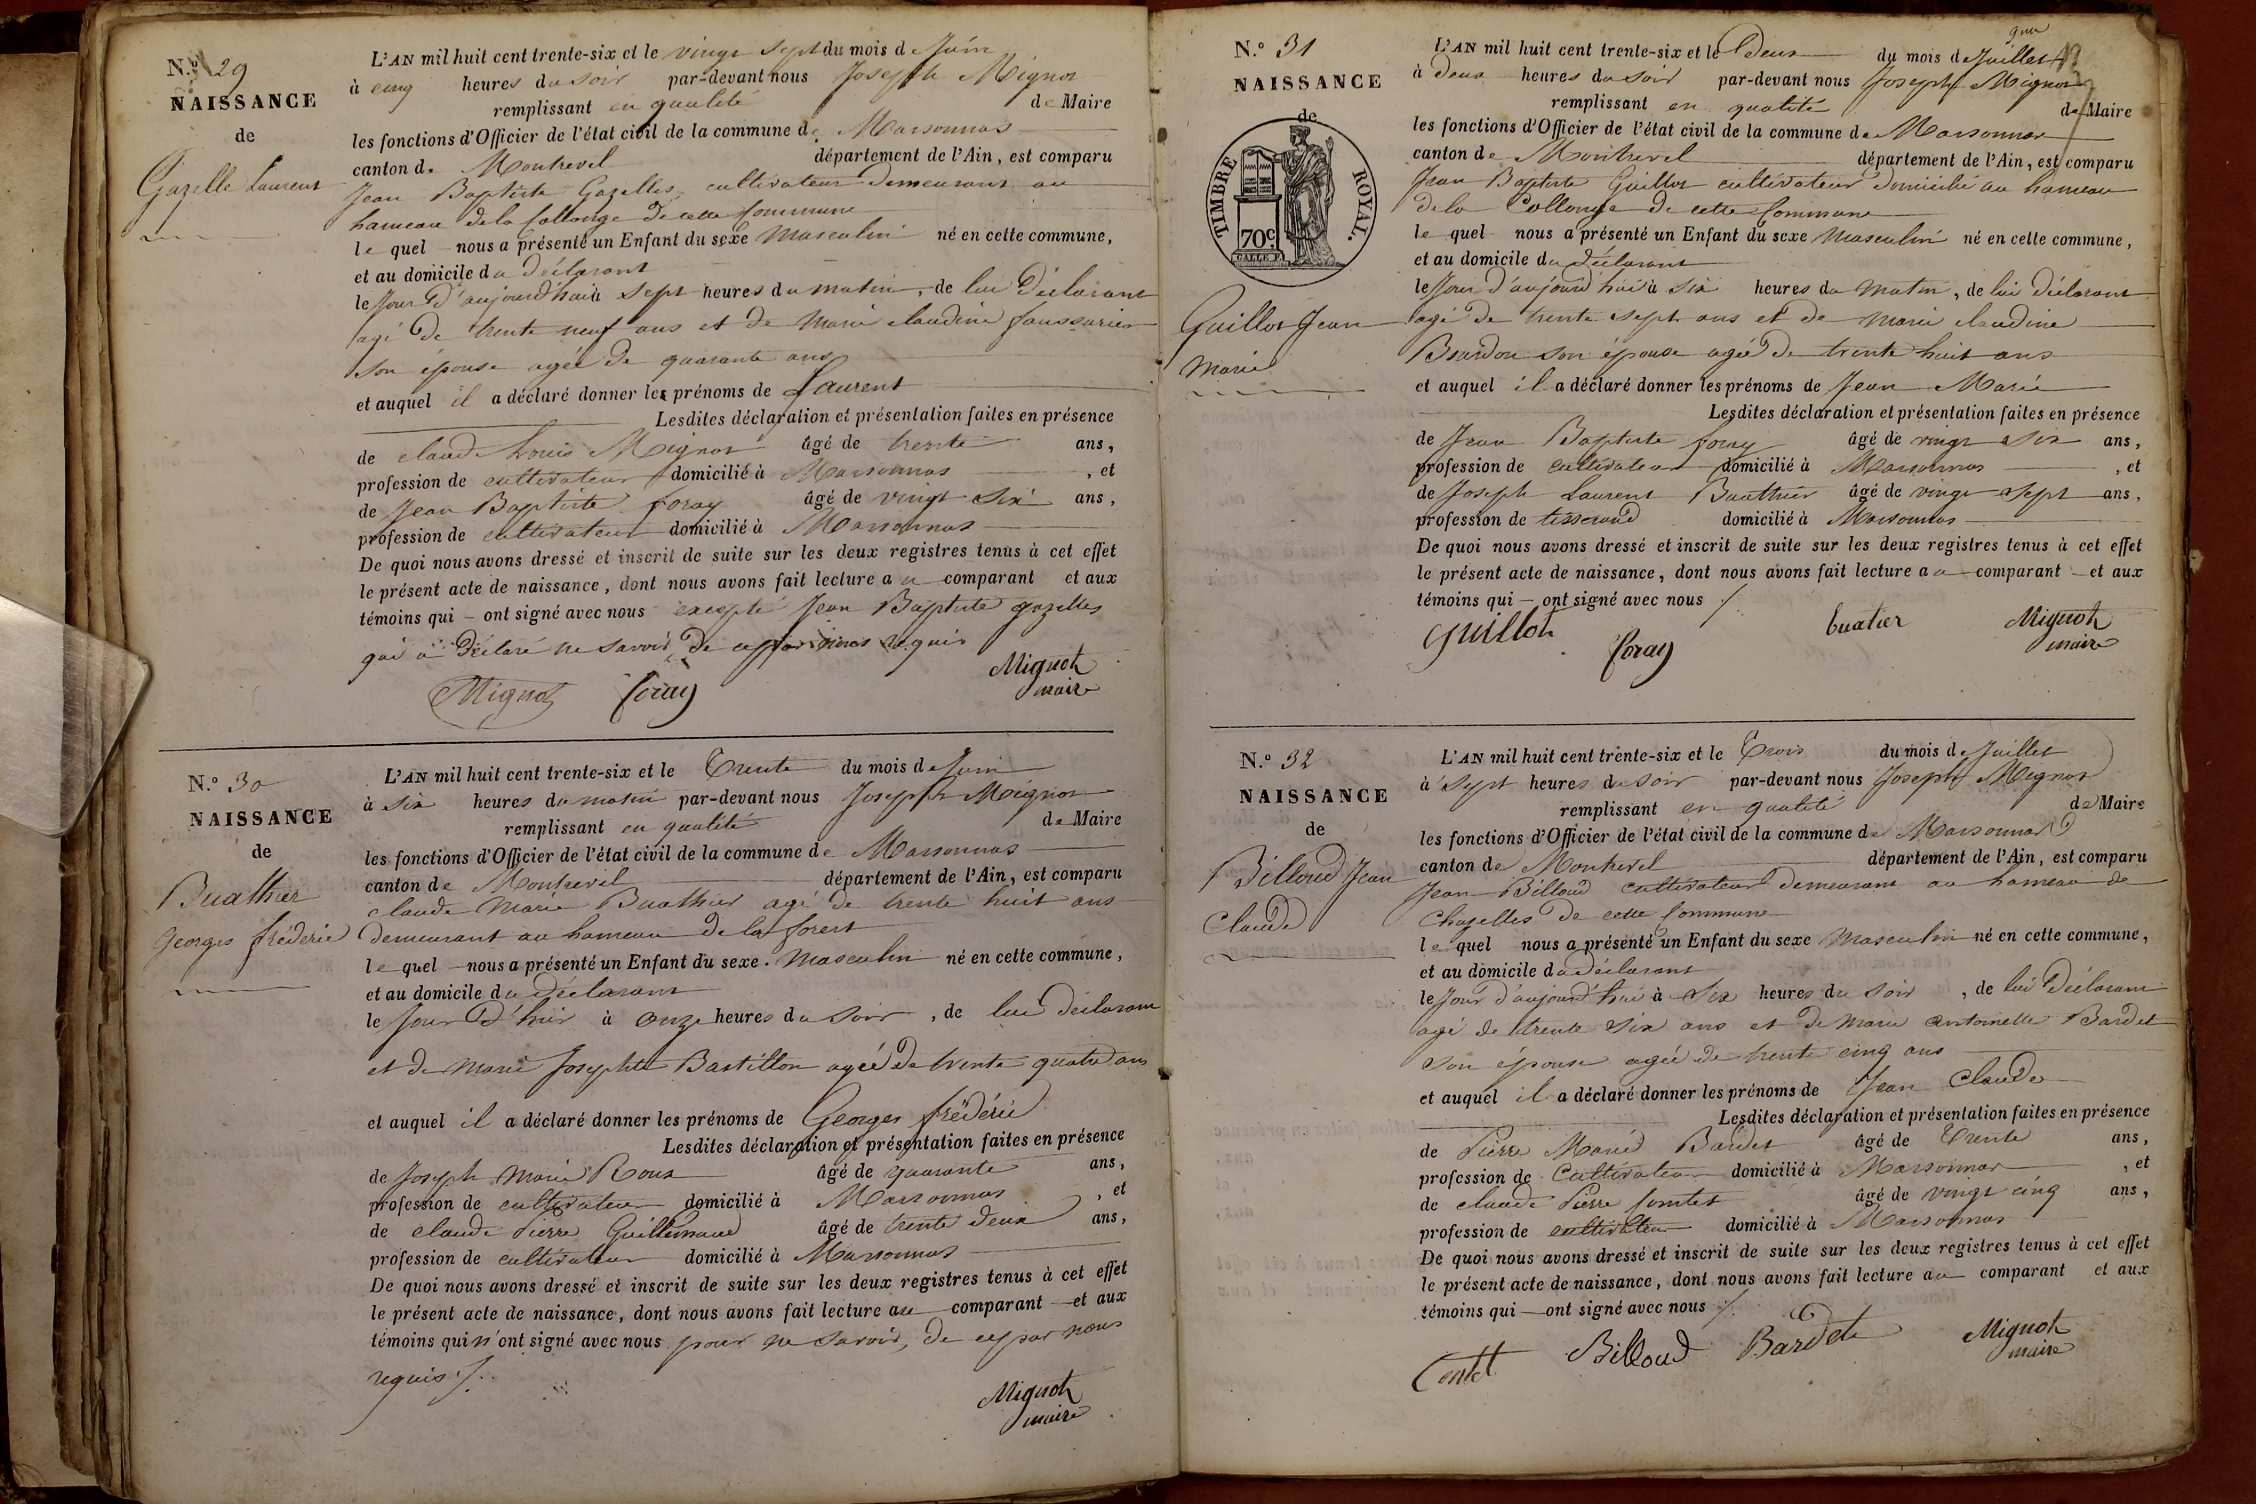 N.º 29
NAISSANCE
de
Gazelle Laurent
L'AN mil huit cent trente-six et le vingt sept du mois de Juin
à cinq heures du soir par-devant nous Joseph Mignot
remplissant en qualité de Maire
les fonctions d'Officier de l'état civil de la commune de Marsonnas
canton de Montrevel département de l'Ain, est comparu
Jean Baptiste Gazelles cultivateur demeurant au
hameau de la Collonge de cette Commune
lequel nous a présenté un Enfant du sexe masculin né en cette commune,
et au domicile du déclarant
le Jour d'aujourd'hui à sept heures du matin, de lui déclarant
agé de trente neuf ans et de Marie claudine
son épouse agée de quarante ans
et auquel il a déclaré donner les prénoms de Laurent
Lesdites déclaration et présentation faites en présence
de claude Louis Mignot âgé de trente ans,
profession de cultivateur domicilié à Marsonnas, et
de Jean Baptiste foray âgé de vingt six ans,
profession de cultivateur domicilié à Marsonnas
De quoi nous avons dressé et inscrit de suite sur les deux registres tenus à cet effet
le présent acte de naissance, dont nous avons fait lecture au comparant et aux
témoins qui ont signé avec nous excepté Jean Baptiste gazelles
qui a déclaré ne savoir, de ce par nous requis
Mignot foray Mignot
maire
N.º 30
NAISSANCE
de
Buathier
georges fréderic
L'AN mil huit cent trente-six et le Trente du mois de Juin
à six heures du matin par-devant nous Joseph Mignot
remplissant en qualité de Maire
les fonctions d'Officier de l'état civil de la commune de Marsonnas
canton de Montrevel département de l'Ain, est comparu
claude Marie Buathier agé de trente huit ans
demeurant au hameau de la forest
lequel nous a présenté un Enfant du sexe masculin né en cette commune,
et au domicile du déclarant
le Jour d'hier à onze heures du soir, de lui déclarant
et de Marie Josephte Bastillon agée de trente quatre ans
et auquel il a déclaré donner les prénoms de Georges fréderic
Lesdites déclaration et présentation faites en présence
de Joseph Marie Roux âgé de quarante ans,
profession de cultivateur domicilié à Marsonnas, et
de claude Pierre Guillemaud âgé de trente deux ans,
profession de cultivateur domicilié à Marsonnas
De quoi nous avons dressé et inscrit de suite sur les deux registres tenus à cet effet
le présent acte de naissance, dont nous avons fait lecture au comparant et aux
témoins qui n'ont signé avec nous pour ne savoir, de ce par nous
requis
Mignot
maire
N.º 31
NAISSANCE
de
TIMBRE ROYAL.
70c
Guillot Jean
Marie
L'AN mil huit cent trente-six et le deux du mois de Juillet
à deux heures du soir par-devant nous Joseph Mignot
remplissant en qualité de Maire
les fonctions d'Officier de l'état civil de la commune de Marsonnas
canton de Montrevel département de l'Ain, est comparu
Jean Baptiste Guillot cultivateur domicilié au hameau
de la Collonge de cette Commune
lequel nous a présenté un Enfant du sexe masculin né en cette commune,
et au domicile du déclarant
le Jour d'aujourd'hui à six heures du matin, de lui déclarant
agé de trente sept ans et de Marie claudine
son épouse agée de trente huit ans
et auquel il a déclaré donner les prénoms de Jean Marie
Lesdites déclaration et présentation faites en présence
de Jean Baptiste foray âgé de vingt six ans,
profession de cultivateur domicilié à Marsonnas, et
de Joseph Laurent Buathier âgé de vingt sept ans,
profession de tisserand domicilié à Marsonnas
De quoi nous avons dressé et inscrit de suite sur les deux registres tenus à cet effet
le présent acte de naissance, dont nous avons fait lecture au comparant et aux
témoins qui ont signé avec nous
guillot foray buatier Mignot
maire
N.º 32
NAISSANCE
de
Billoud Jean
Claude
L'AN mil huit cent trente-six et le Trois du mois de Juillet
à sept heures du soir par-devant nous Joseph Mignot
remplissant en qualité de Maire
les fonctions d'Officier de l'état civil de la commune de Marsonnas
canton de Montrevel département de l'Ain, est comparu
Jean Billoud cultivateur demeurant au hameau de
Chazelles de cette Commune
lequel nous a présenté un Enfant du sexe masculin né en cette commune,
et au domicile du déclarant
le Jour d'aujourd'hui à six heures du soir, de lui déclarant
agé de trente six ans et de Marie antoinette Bardet
son épouse agée de trente cinq ans
et auquel il a déclaré donner les prénoms de Jean Claude
Lesdites déclaration et présentation faites en présence
de Pierre Marie Bardet âgé de Trente ans,
profession de Cultivateur domicilié à Marsonnas, et
de claude Pierre âgé de vingt cinq ans,
profession de cultivateur domicilié à Marsonnas
De quoi nous avons dressé et inscrit de suite sur les deux registres tenus à cet effet
le présent acte de naissance, dont nous avons fait lecture au comparant et aux
témoins qui ont signé avec nous
Billoud Bardet Mignot
maire